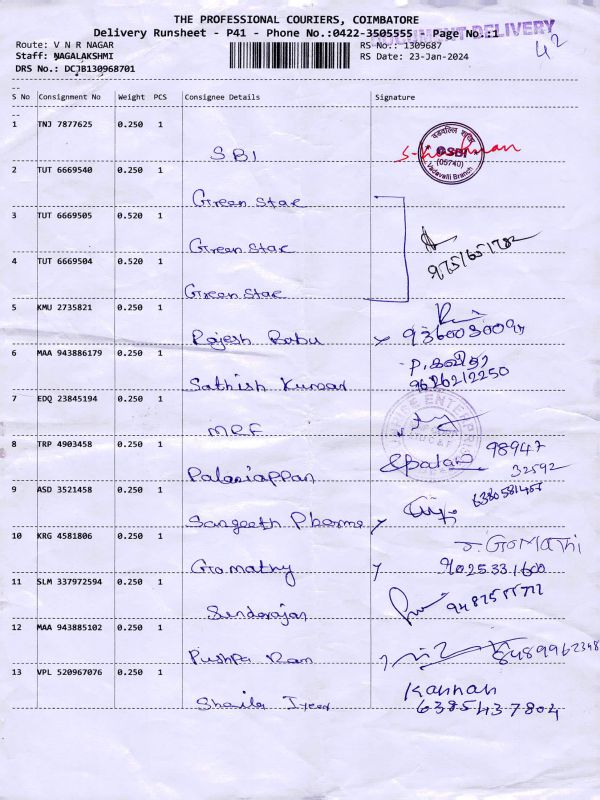 THE PROFESSIONAL COURIERS, COIMBATORE
Delivery Runsheet - P41 - Phone No.:0422-3505555 Page No.:1
DOCUMENT DELIVERY
42
Route: V N R NAGAR
RS No.: 1309687
Staff: NAGALAKSHMI
RS Date: 23-Jan-2024
DRS No.: DCJB130968701
S No Consignment No Weight PCS Consignee Details Signature
1 TNJ 7877625 0.250 1 SBI
SBI
(05740)
Vadavalli Branch
2 TUT 6669540 0.250 1 Green star
3 TUT 6669505 0.520 1 Green star
4 TUT 6669504 0.520 1 Green star
5 KMU 2735821 0.250 1 Rajesh Babu
6 MAA 943886179 0.250 1 Sathish Kumar
P. கவிதா
9626212250
7 EDQ 23845194 0.250 1 MRF
8 TRP 4903458 0.250 1 Palaniappan
98947
32592
9 ASD 3521458 0.250 1 Sangeeth Pharma
10 KRG 4581806 0.250 1 Gomathy
J. GOMATHI
9025331600
11 SLM 337972594 0.250 1 Sundarajan
12 MAA 943885102 0.250 1 Pushpa Ram
8489962348
13 VPL 520967076 0.250 1 Shaila Iyer
Kannan
6385437804